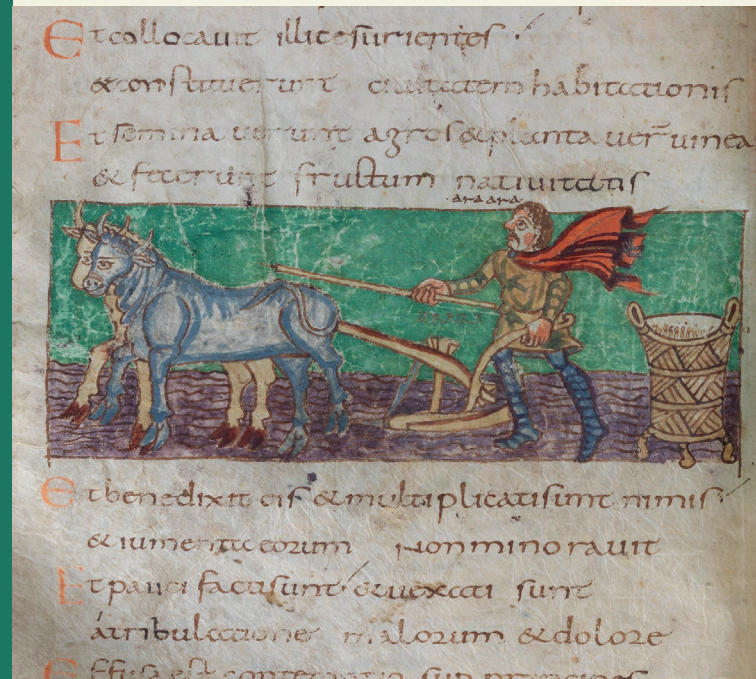 Et collocavit illic esurientes
& constituerunt civitatem habitationis
Et semina verunt agros & planta verunt vinea
& fecerunt fructum nativitatis
ara ara
Et benedixit eis & multiplicati sunt nimis
& iumenta eorum non minoravit
Et pauci facti sunt & vexati sunt
a tribulatione malorum & dolore
Effusa est contemptio sup principes